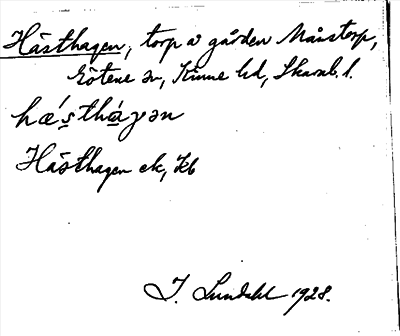 Hästhagen, torp å gården Månstorp,
Götene sn, Kinne hd, Skarab. l.
hǽsthágən
Hästhagen ek, Kb
I. Lundahl 1928.